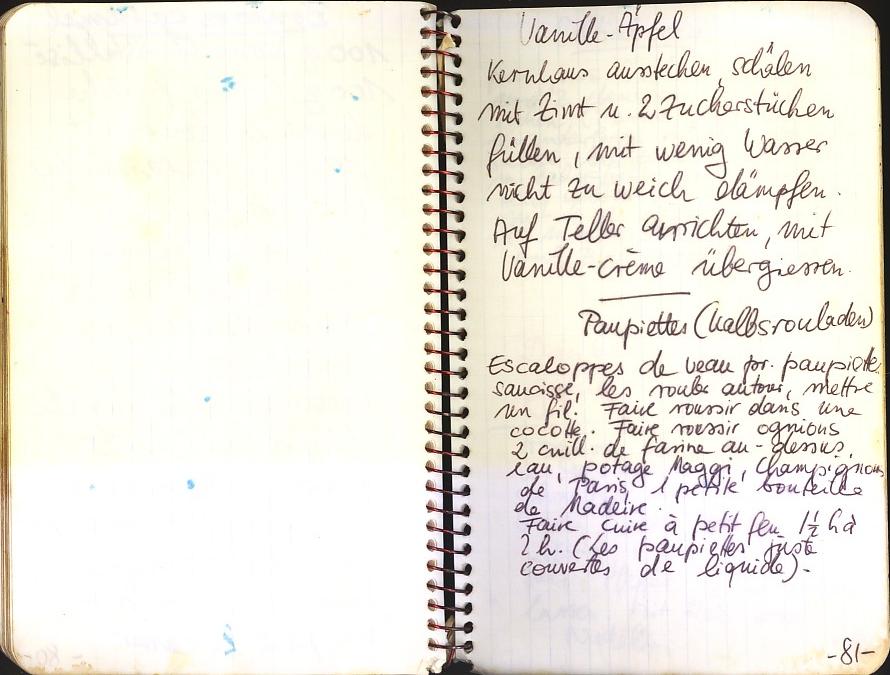 Vanille-Äpfel
Kernhaus ausstechen, schälen
mit Zimt u. 2 Zuckerstücken
füllen, mit wenig Wasser
nicht zu weich dämpfen.
Auf Teller anrichten, mit
Vanille-crème übergiessen.
Paupiettes (Kalbsrouladen)
Escaloppes de veau pr. paupiette,
saucisse, les rouler autour, mettre
un fil. Faire roussir dans une
cocotte. Faire roussir ognions
2 cuill. de farine au-dessus,
eau, potage Maggi, Champignons
de Paris, 1 petite bouteille
de Madeire.
Faire cuire à petit feu 1½ h à
2 h. (Les paupiettes juste
couvertes de liquide).
-81-